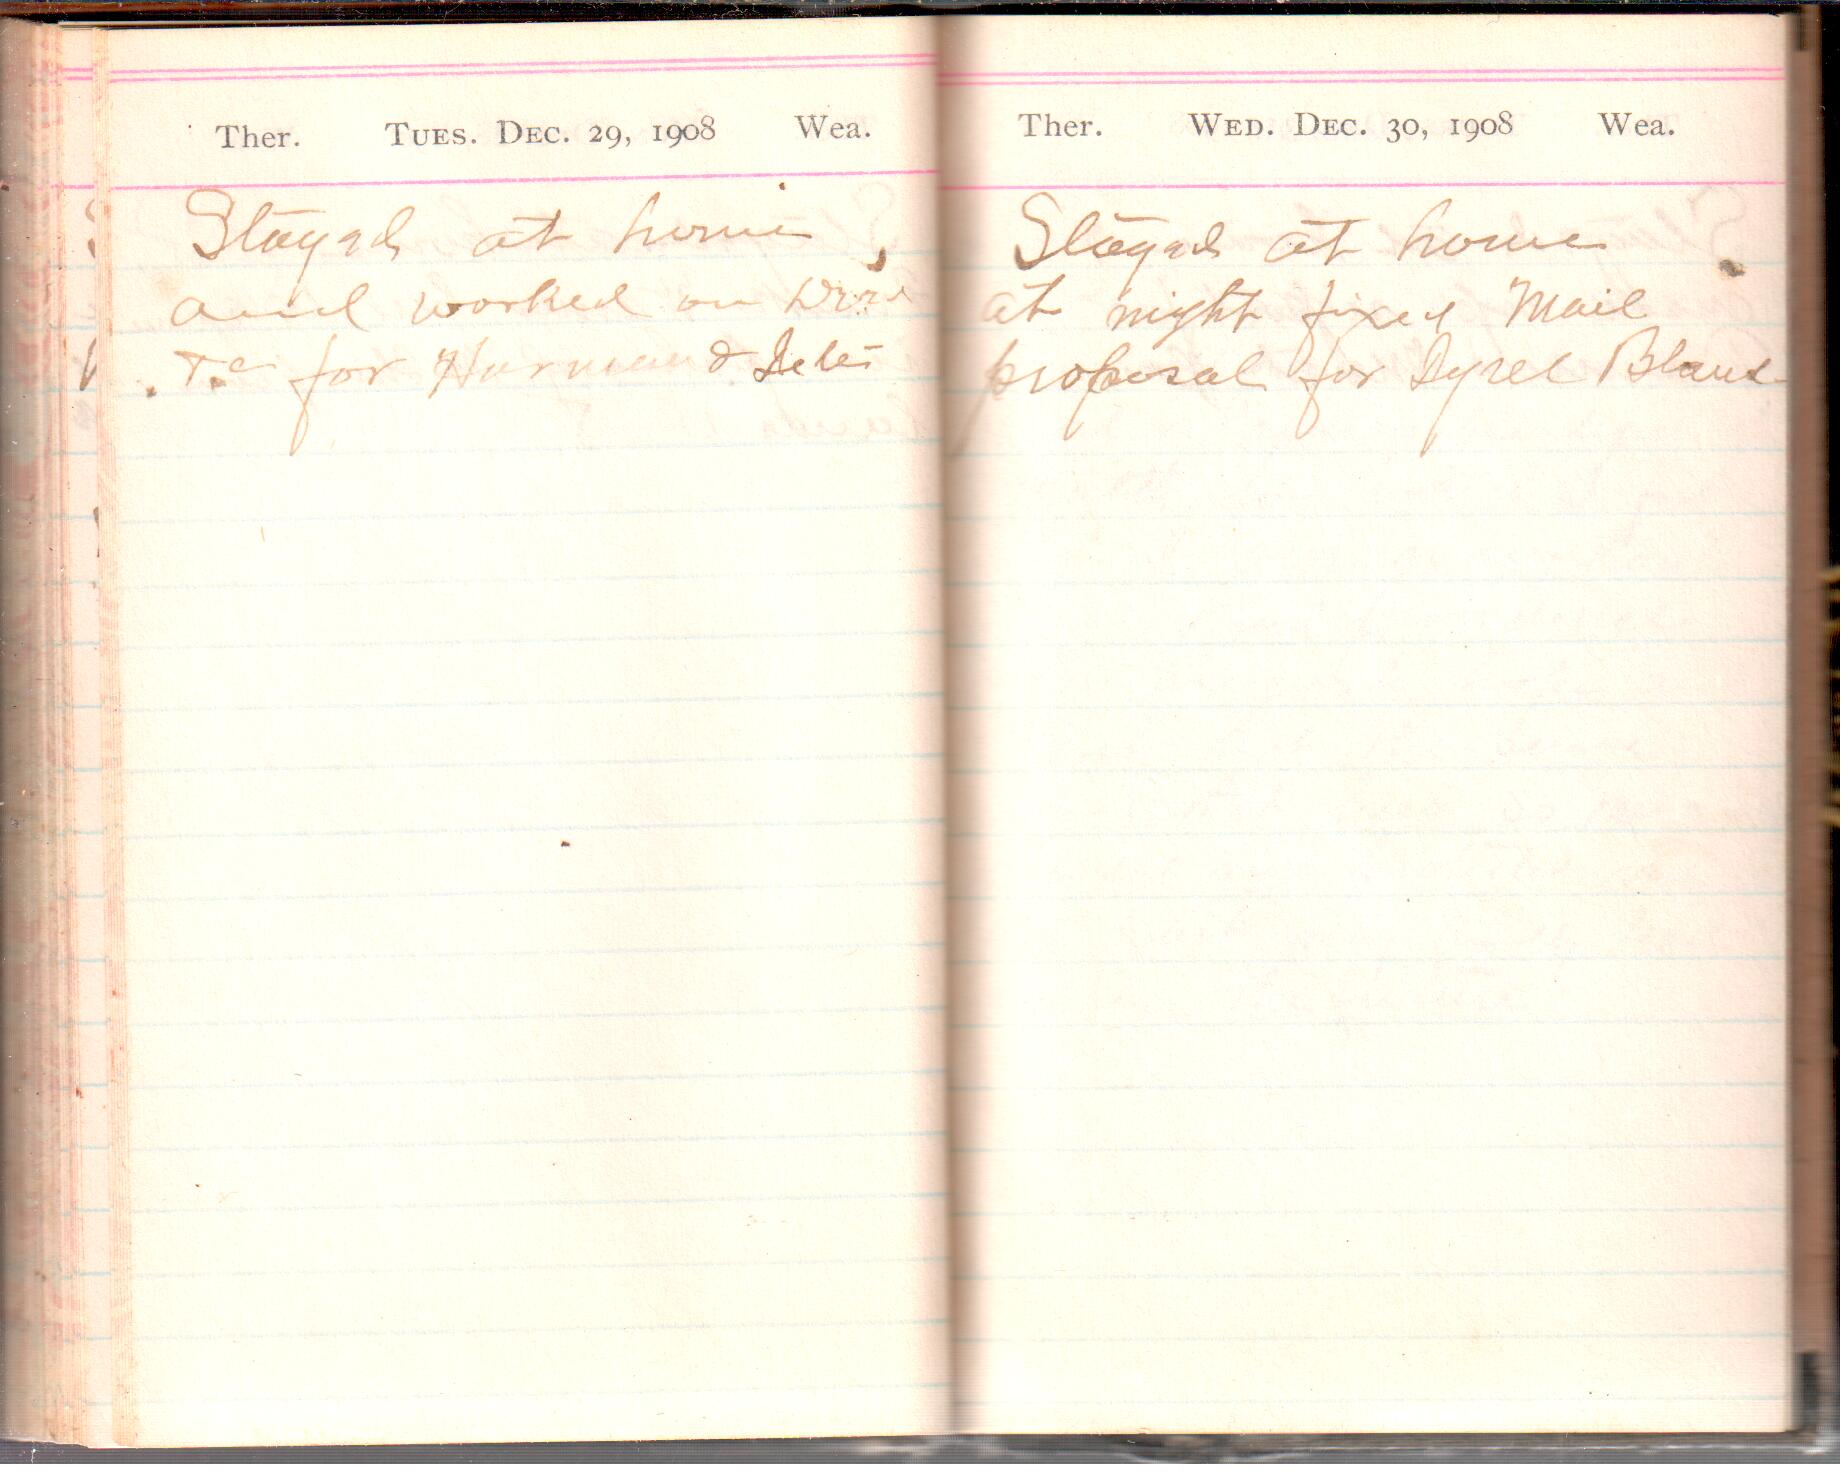 Ther. Tues. Dec. 29, 1908 Wea.
Stayed at home
and worked on
&c for Harman &
Ther. Wed. Dec. 30, 1908 Wea.
Stayed at home
at night fixed Mail
proposal for Byrel Bland